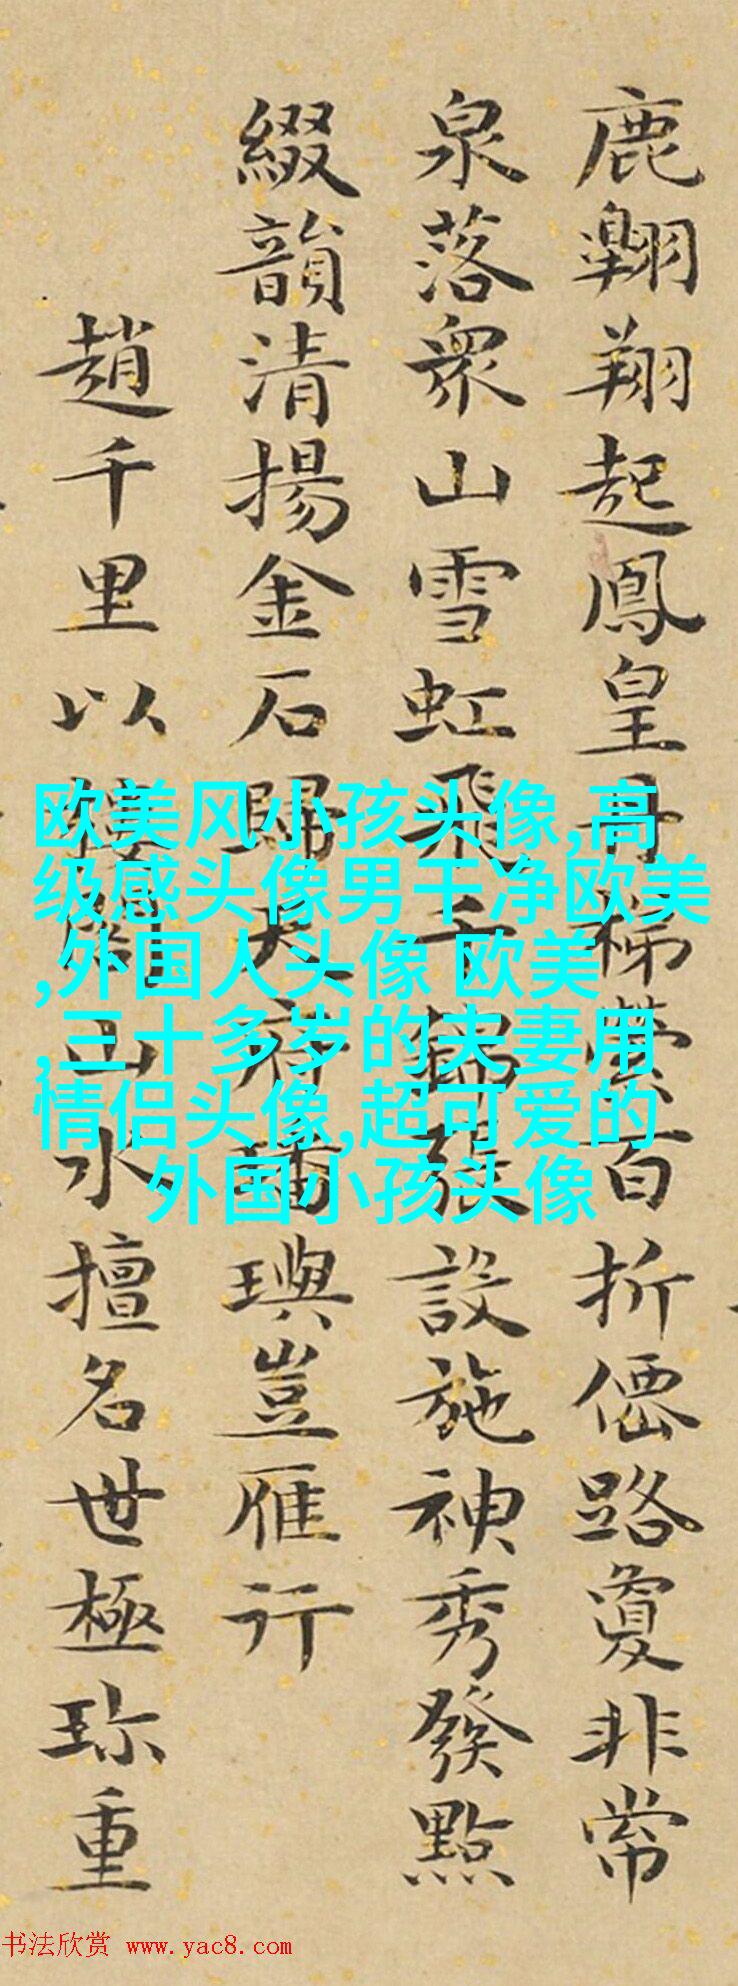 鹿翱翔起鳳皇丹梯縈百折僊路敻非常
泉落衆山雪虹飛千錦張設施神秀發點
綴韻清揚金石歸天府璠璵豈雁行
趙千里以樓閣山水擅名世極珎重
欧美风小孩头像,高
级感头像男干净欧美
,外国人头像 欧美
,三十多岁的夫妻用
情侣头像,超可爱的
外国小孩头像
书法欣赏 www.yac8.com